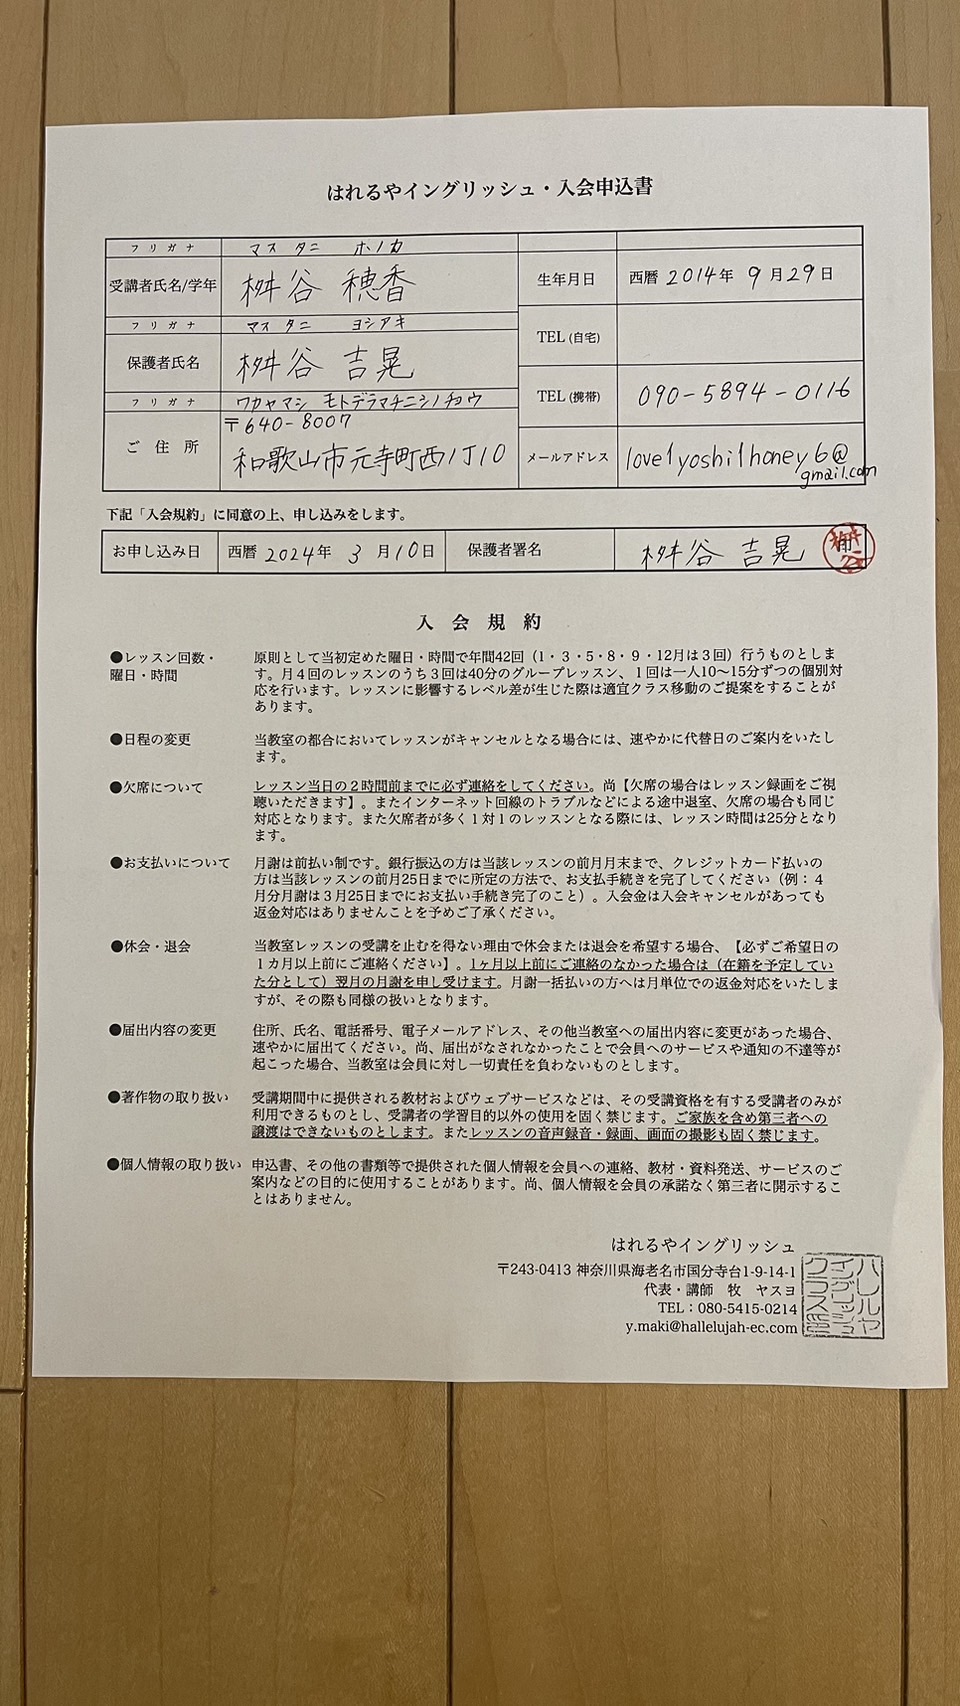 はれるやイングリッシュ・入会申込書
フリガナ マスタニ ホノカ
受講者氏名/学年 桝谷 穂香
生年月日 西暦 2014年 9月29日
フリガナ マスタニ ヨシアキ
保護者氏名 桝谷 吉晃
TEL (自宅)
フリガナ ワカヤマシ モトデラマチニシノチョウ
TEL (携帯) 090-5894-0116
ご住所 〒640-8007
和歌山市元寺町西ノ丁10
メールアドレス love1yoshi1honey6@
gmail.com
下記「入会規約」に同意の上、申し込みをします。
お申し込み日 西暦 2024年 3月10日 保護者署名 桝谷 吉晃
入会規約
●レッスン回数・
曜日・時間
原則として当初定めた曜日・時間で年間42回（1・3・5・8・9・12月は３回）行うものとしま
す。月４回のレッスンのうち３回は40分のグループレッスン、１回は一人10〜15分ずつの個別対
応を行います。レッスンに影響するレベル差が生じた際は適宜クラス移動のご提案をすることが
あります。
●日程の変更 当教室の都合においてレッスンがキャンセルとなる場合には、速やかに代替日のご案内をいたし
ます。
●欠席について レッスン当日の２時間前までに必ず連絡をしてください。尚【欠席の場合はレッスン録画をご視
聴いただきます】。またインターネット回線のトラブルなどによる途中退室、欠席の場合も同じ
対応となります。また欠席者が多く１対１のレッスンとなる際には、レッスン時間は25分となり
ます。
●お支払いについて 月謝は前払い制です。銀行振込の方は当該レッスンの前月月末まで、クレジットカード払いの
方は当該レッスンの前月25日までに所定の方法で、お支払手続きを完了してください（例：４
月分月謝は３月25日までにお支払い手続き完了のこと）。入会金は入会キャンセルがあっても
返金対応はありませんことを予めご了承ください。
●休会・退会 当教室レッスンの受講を止むを得ない理由で休会または退会を希望する場合、【必ずご希望日の
１カ月以上前にご連絡ください】。1ヶ月以上前にご連絡のなかった場合は（在籍を予定してい
た分として）翌月の月謝を申し受けます。月謝一括払いの方へは月単位での返金対応をいたしま
すが、その際も同様の扱いとなります。
●届出内容の変更 住所、氏名、電話番号、電子メールアドレス、その他当教室への届出内容に変更があった場合、
速やかに届出てください。尚、届出がなされなかったことで会員へのサービスや通知の不達等が
起こった場合、当教室は会員に対し一切責任を負わないものとします。
●著作物の取り扱い 受講期間中に提供される教材およびウェブサービスなどは、その受講資格を有する受講者のみが
利用できるものとし、受講者の学習目的以外の使用を固く禁じます。ご家族を含め第三者への
譲渡はできないものとします。またレッスンの音声録音・録画、画面の撮影も固く禁じます。
●個人情報の取り扱い 申込書、その他の書類等で提供された個人情報を会員への連絡、教材・資料発送、サービスのご
案内などの目的に使用することがあります。尚、個人情報を会員の承諾なく第三者に開示するこ
とはありません。
はれるやイングリッシュ
〒243-0413 神奈川県海老名市国分寺台1-9-14-1
代表・講師 牧 ヤスヨ
TEL：080-5415-0214
y.maki@hallelujah-ec.com
ハレルヤ
イングリッシュ
クラス